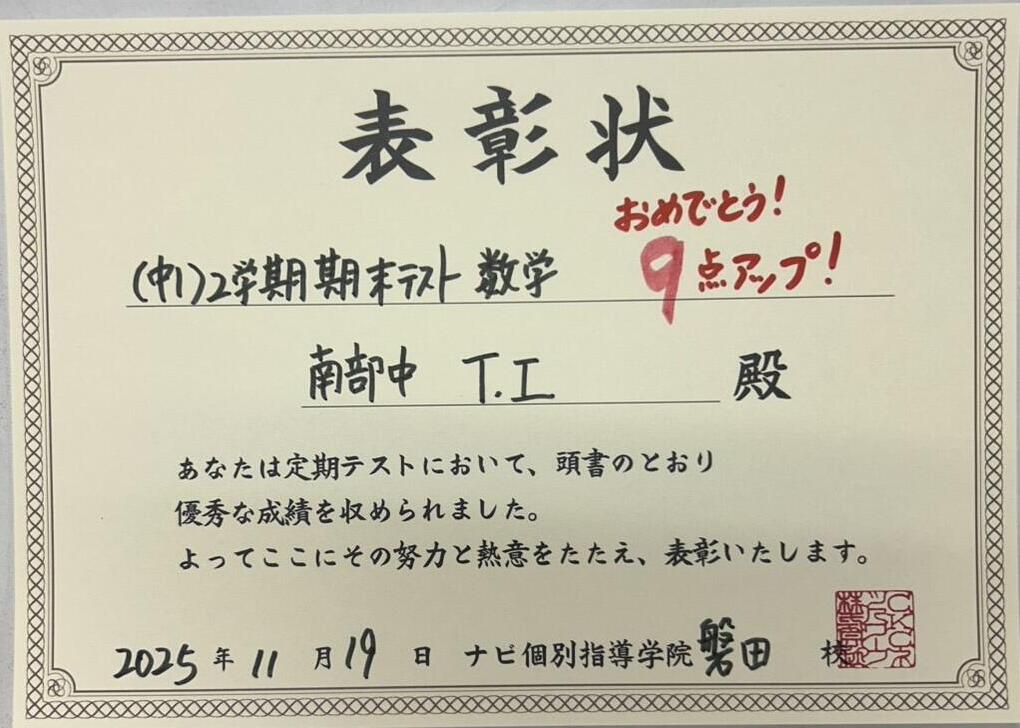 表彰状
おめでとう!
(中1)2学期期末テスト 数学 9点アップ!
南部中 T.I 殿
あなたは定期テストにおいて、頭書のとおり
優秀な成績を収められました。
よってここにその努力と熱意をたたえ、表彰いたします。
2025年11月19日 ナビ個別指導学院 磐田 校